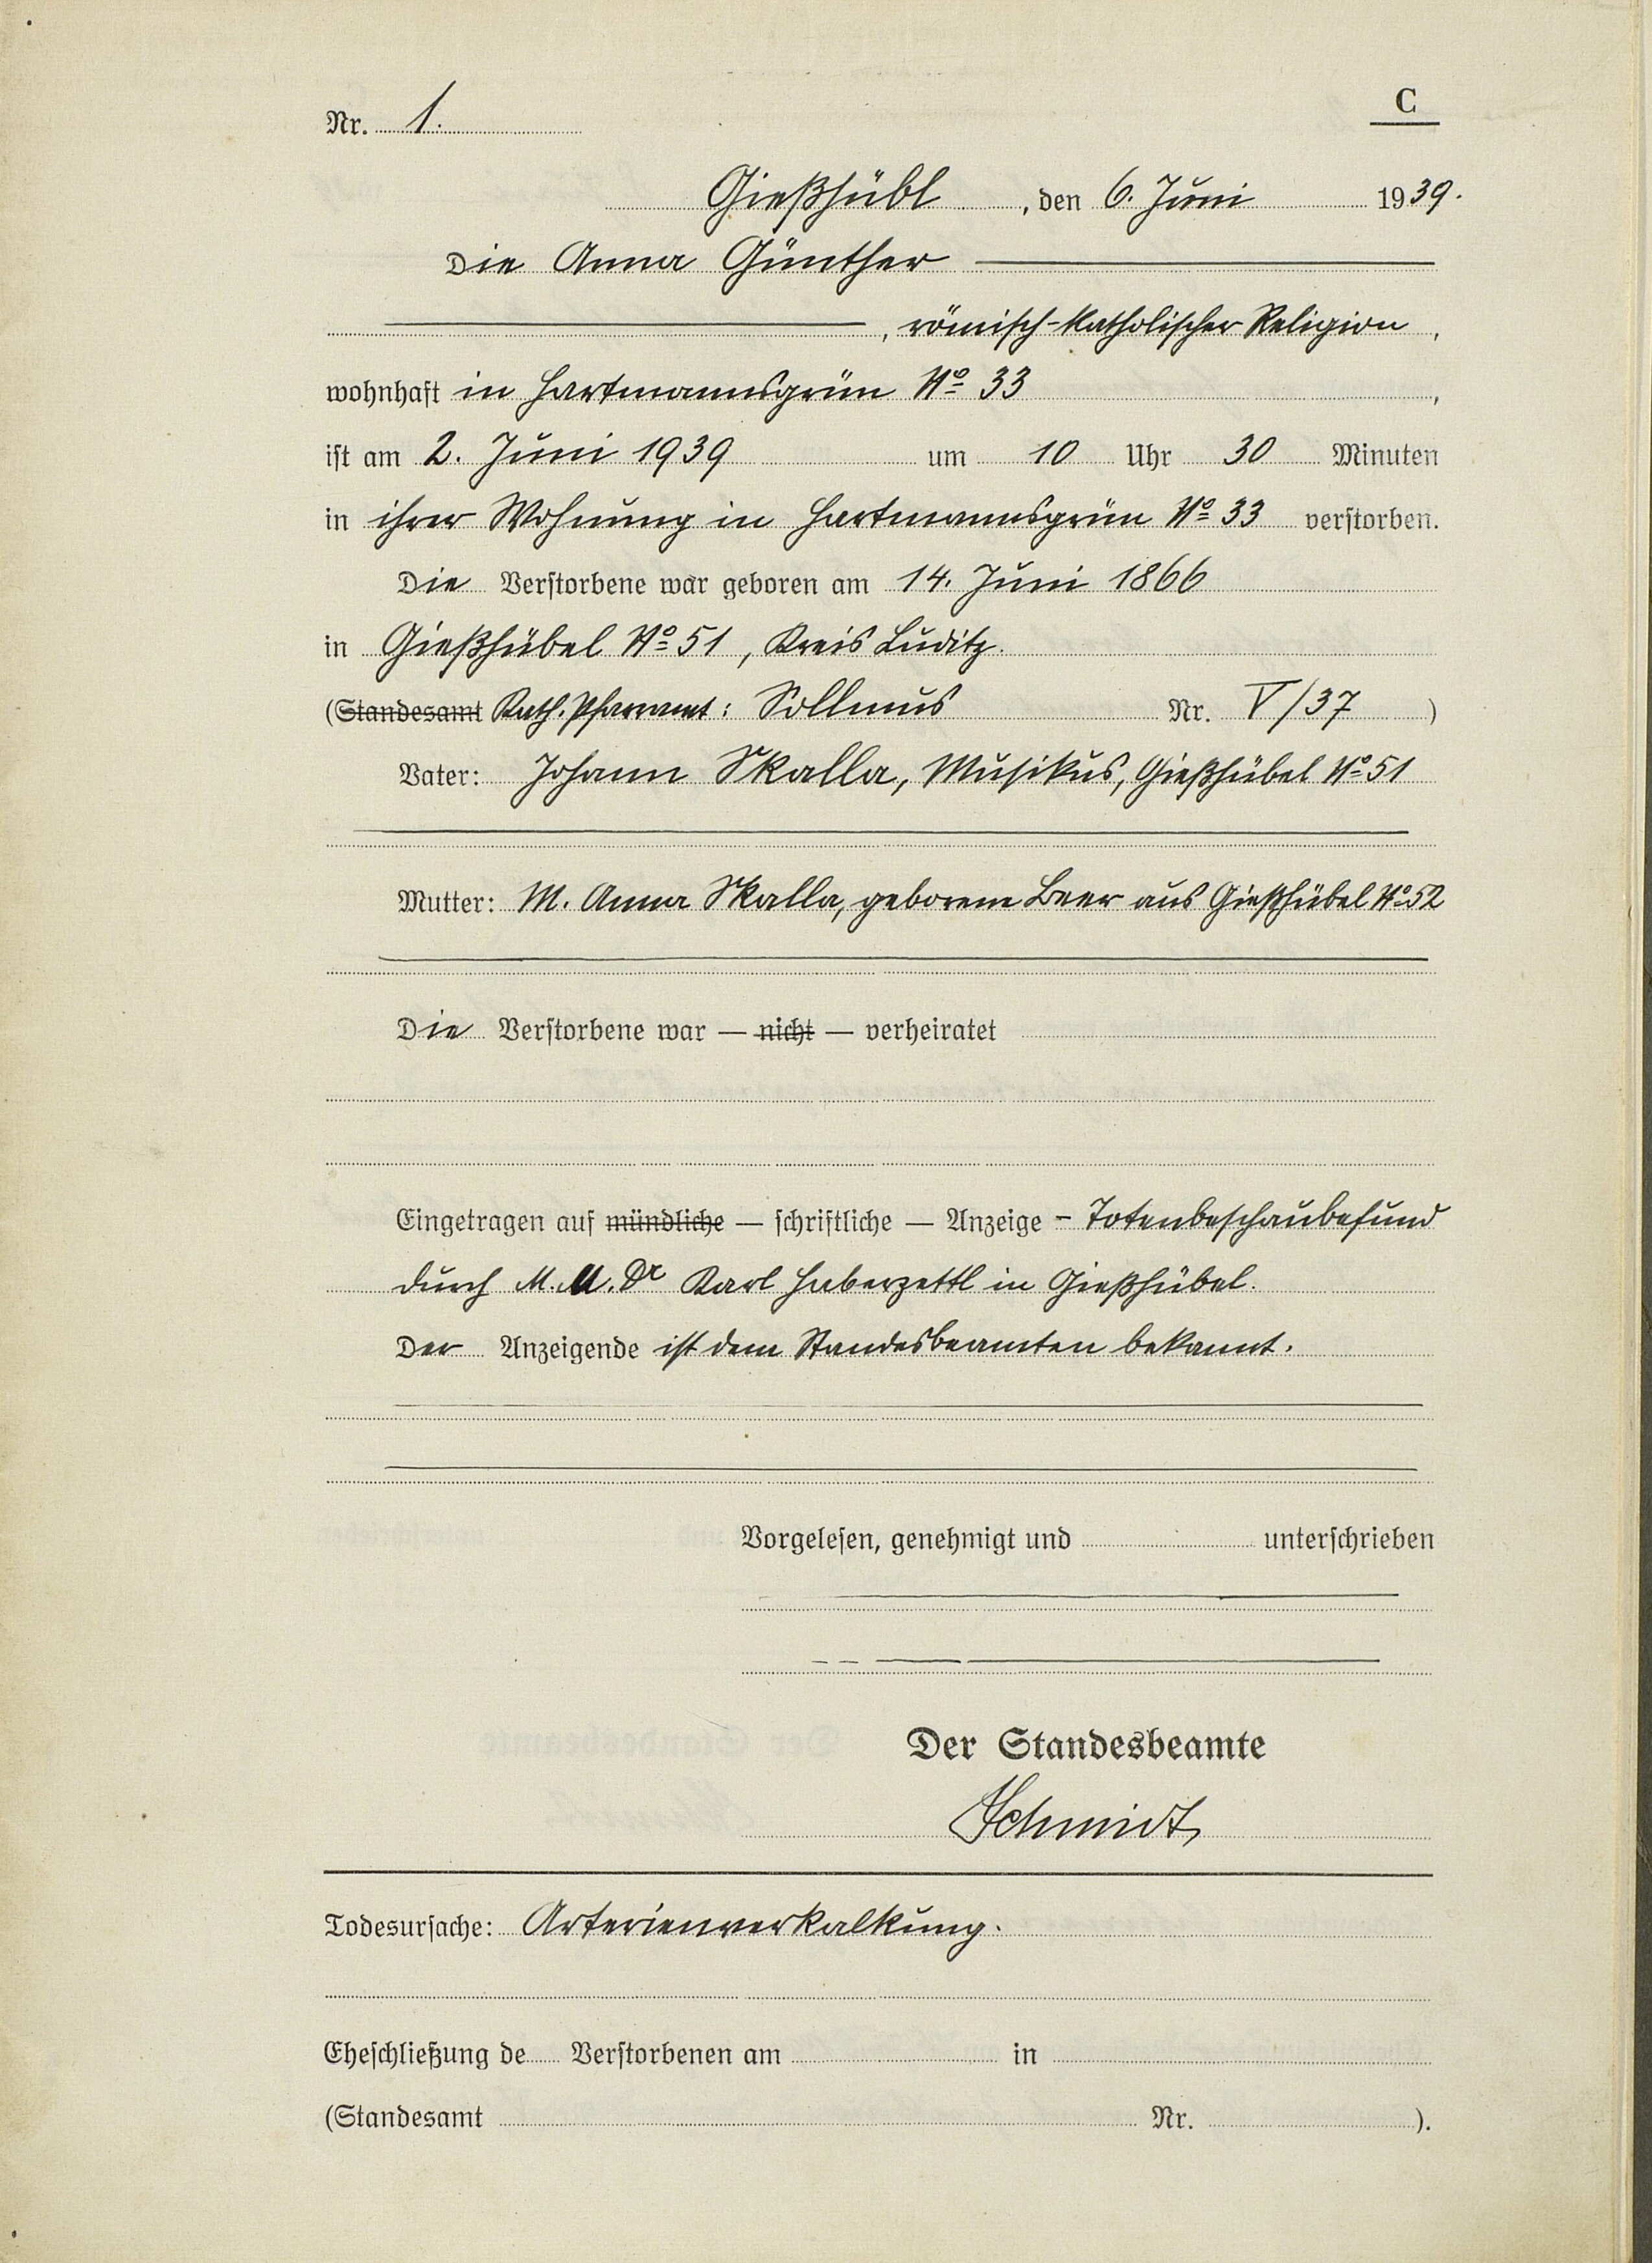 Nr. 1.
C
Gießhübl, den 6. Juni 1939.
Die Anna Günther
, römisch-katholischer Religion,
wohnhaft in Hartmannsgrün No 33,
ist am 2. Juni 1939 um 10 Uhr 30 Minuten
in ihrer Wohnung in Hartmannsgrün No 33 verstorben.
Die Verstorbene war geboren am 14. Juni 1866
in Gießhübel No 51, Kreis Luditz.
(Standesamt Kath. Pfarramt: Sollmus Nr. V/37)
Vater: Johann Skalla, Musikus, Gießhübel No 51
Mutter: M. Anna Skalla, geborene Beer aus Gießhübel No 52
Die Verstorbene war — nicht — verheiratet
Eingetragen auf mündliche — schriftliche — Anzeige - Totenbeschaubefund
durch M.U.Dr Karl Haberzettl in Gießhübel.
Der Anzeigende ist dem Standesbeamten bekannt.
Vorgelesen, genehmigt und unterschrieben
Der Standesbeamte
Schmidt
Todesursache: Arterienverkalkung.
Eheschließung de Verstorbenen am in
(Standesamt Nr. ).